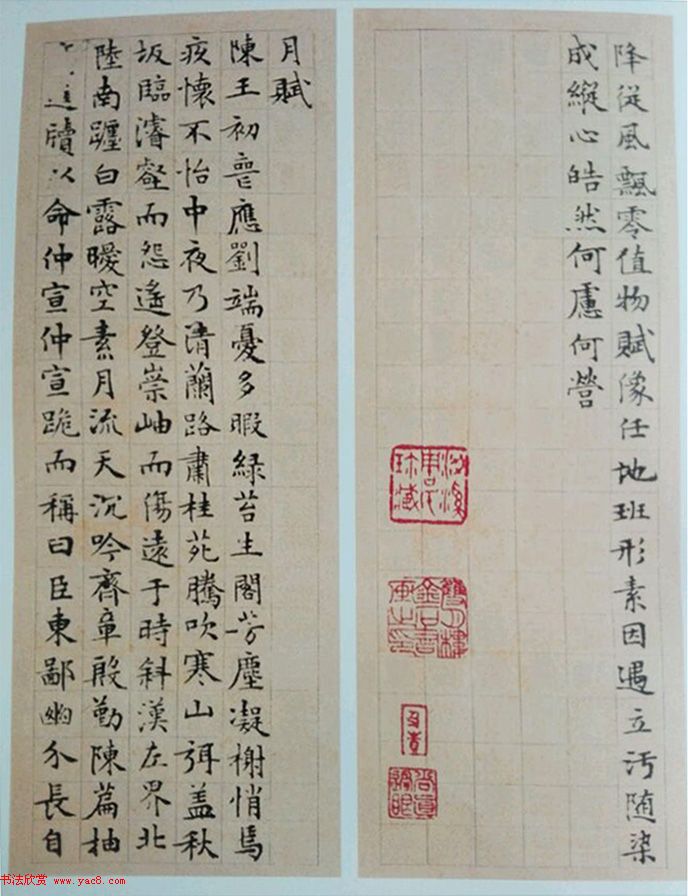 降從風飄零值物賦像任地班形素因遇立汚随染
成縱心皓然何慮何營
月賦
陳王初喪應劉端憂多暇緑苔生閣芳塵凝榭悄焉
疚懷不怡中夜乃清蘭路肅桂苑騰吹寒山弭盖秋
坂臨濬壑而怨遥登崇岫而傷遠于時斜漢左界北
陸南躔白露曖空素月流天沉吟齊章殷勤陳篇抽
進牘以命仲宣仲宣跪而稱曰臣東鄙幽介長自
书法欣赏 www.yac8.com